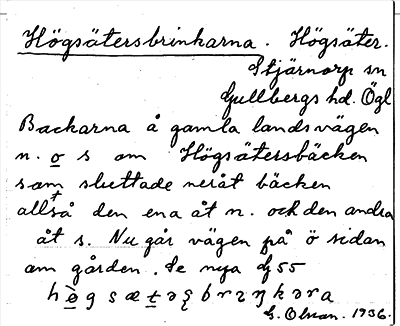 Högsätersbrinkarna. Högsäter.
Stjärnorp sn
Gullbergs hd. Ögl
Backarna å gamla landsvägen
n. o s om Högsätersbäcken
som sluttade neråt bäcken
alltså den ena åt n. och den andra
åt s. Nu går vägen på ö sidan
om gården. Se nya G55
G. Olson. 1936.